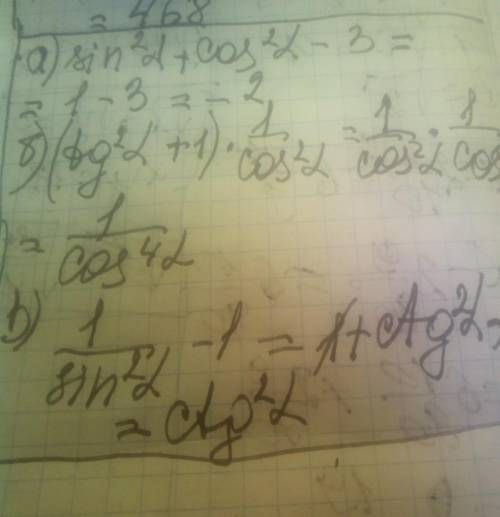 = 468
а) sin²α + cos²α - 3 =
= 1 - 3 = -2
б) (tg²α + 1) · 1/cos²α = 1/cos²α · 1/cos
= 1/cos⁴α
в) 1/sin²α - 1 = 1 + ctg²α -
= ctg²α